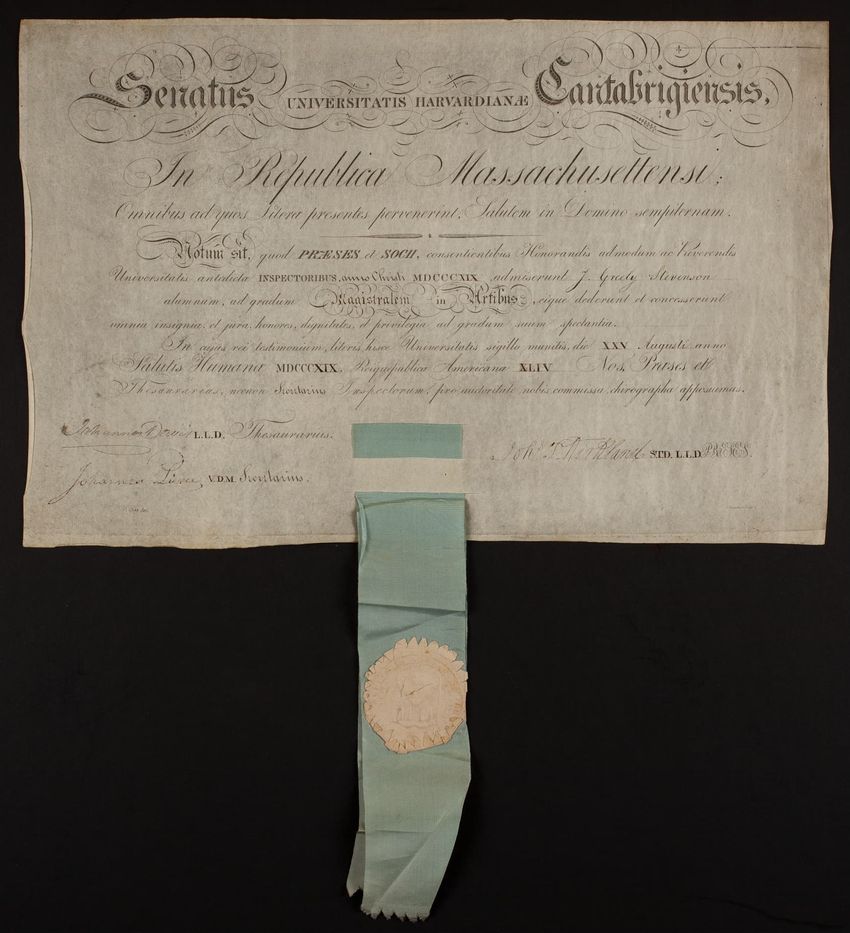 Senatus UNIVERSITATIS HARVARDIANÆ Cantabrigiensis,
In Republica Massachusettensi:
Omnibus ad quos Litera presentes pervenerint, Salutem in Domino sempiternam.
Notum sit, quod PRÆSES et SOCII, consentientibus Honorandis admodum ac Reverendis
Universitatis antedicta INSPECTORIBUS, anno Christi MDCCCXIX admiserunt J. Greely Stevenson
alumnum, ad gradum Magistralem in Artibus, eique dederunt et concesserunt
omnia insignia, et jura, honores, dignitates, et privilegia ad gradum suum spectantia.
In cujus rei testimonium, literis hisce Universitatis sigillo munitis, die XXV Augusti anno
Salutis Humana MDCCCXIX, Reiquepublica Americana XLIV Nos, Præses et
Thesaurarius, necnon Secretarius Inspectorum, pro auctoritate nobis commissa, chirographa apposuimus.
Johannes Davis L.L.D. Thesaurarius.
Joh. T. Kirkland S.T.D. L.L.D. PRÆSES.
Johannes V.D.M. Secretarius.